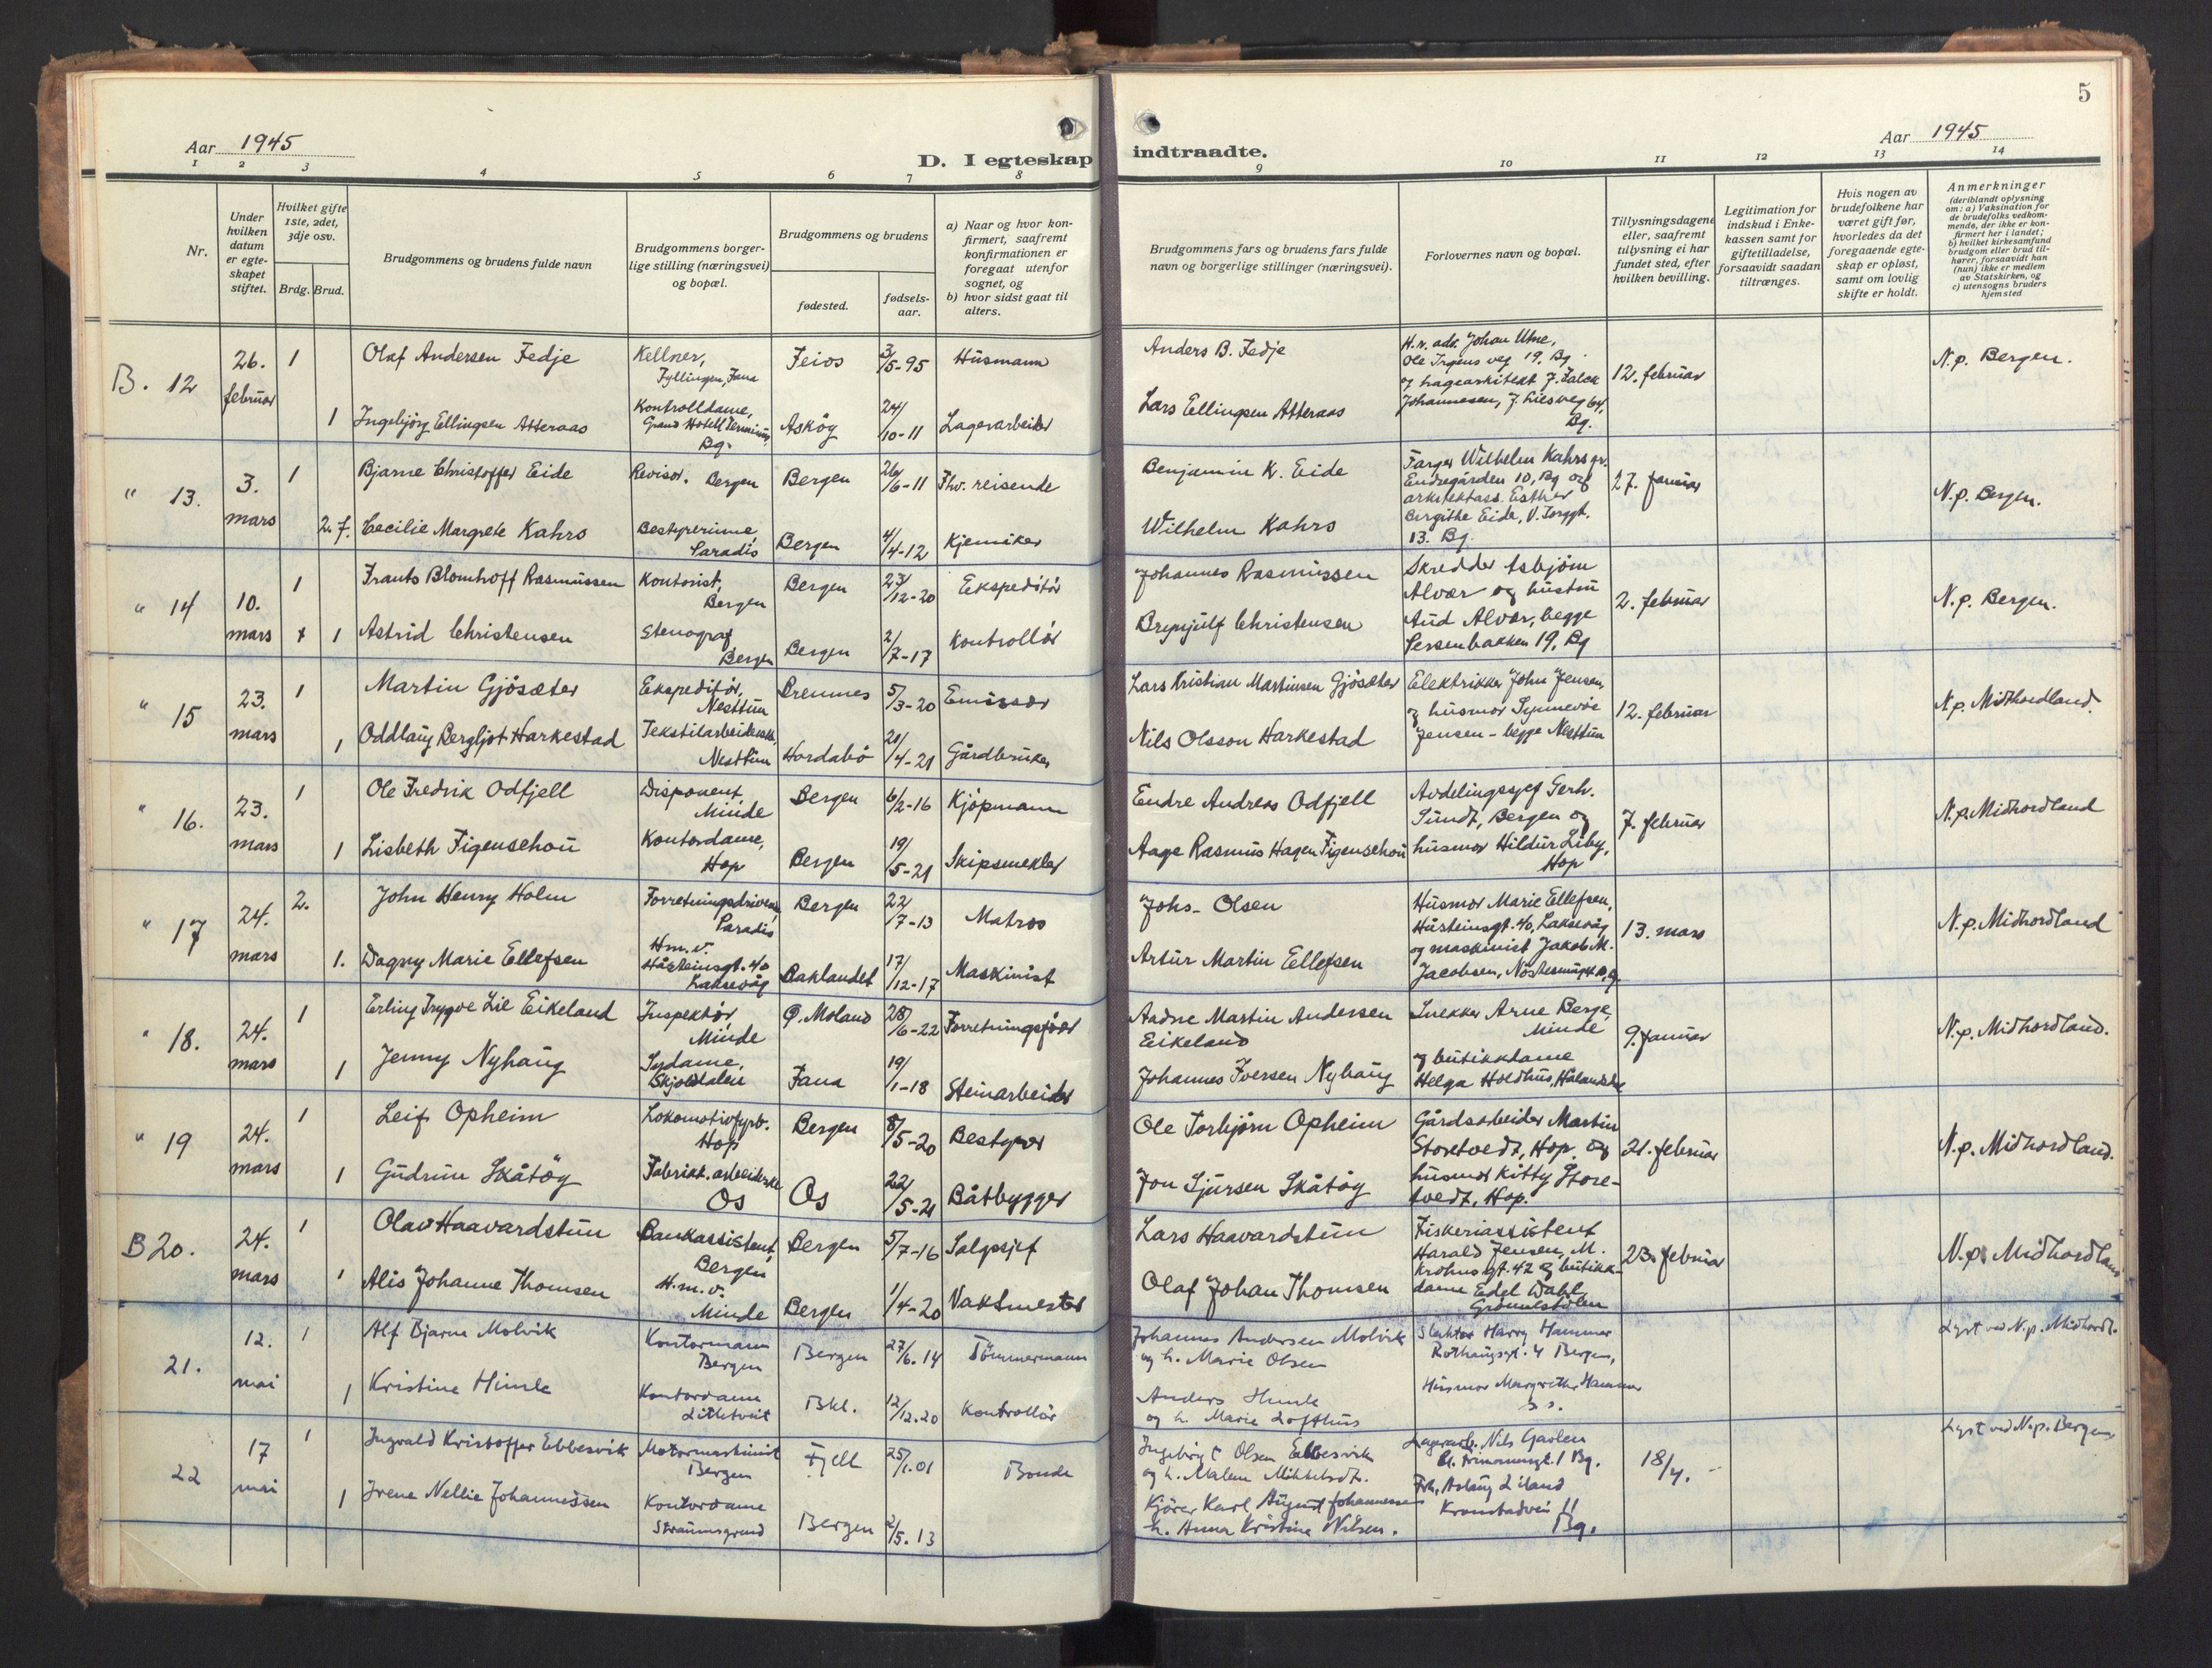 5
Aar 1945
D. I egteskap indtraadte.
Aar 1945
1 2 3 4 5 6 7 8 9 10 11 12 13 14
Nr.
Under hvilken datum er egteskapet stiftet.
Hvilket gifte 1ste, 2det, 3dje osv.
Brdg. Brud.
Brudgommens og brudens fulde navn
Brudgommens borgerlige stilling (næringsvei) og bopæl.
Brudgommens og brudens
fødested.
fødselsaar.
a) Naar og hvor konfirmert, saafremt konfirmationen er foregaat utenfor sognet, og
b) hvor sidst gaat til alters.
Brudgommens fars og brudens fars fulde navn og borgerlige stillinger (næringsvei).
Forlovernes navn og bopæl.
Tillysningsdagene eller, saafremt tillysning ei har fundet sted, efter hvilken bevilling.
Legitimation for indskud i Enkekassen samt for giftetilladelse, forsaavidt saadan tiltrænges.
Hvis nogen av brudefolkene har været gift før, hvorledes da det foregaaende egteskap er opløst, samt om lovlig skifte er holdt.
Anmerkninger (deriblandt oplysning om: a) Vaksination for de brudefolks vedkommende, der ikke er konfirmert her i landet; b) hvilket kirkesamfund brudgom eller brud tilhører, forsaavidt han (hun) ikke er medlem av Statskirken, og c) utensogns bruders hjemsted
B. 12 26. februar 1 Olaf Andersen Fedje Kellner, Fyllingen, Fana Feios 3/5-95 Husmann Anders B. Fedje
H.r. adv. Johan Utne, Ole Irgens veg 19, Bg. og hagearkitekt F. Falck Johannesen, J. Liesveg 64, Bg. 12. februar N.p. Bergen.
1 Ingebjörg Ellingsen Atteraas Kontrolldame, Grand Hotell Terminus, Bg. Askøy 24/10-11 Lagerarbeider Lars Ellingsen Atteraas
" 13. 3. mars 1 Bjarne Christoffer Eide Revisor. Bergen Bergen 26/6-11 Fhv. reisende Benjamin K. Eide
Farger Wilhelm Kahrs gr. Endregården 10, Bg og arkitektass. Esther Bergithe Eide, V. Torggt. 13. Bg. 27. januar N.p. Bergen.
2. f. Cecilie Margrete Kahrs Bestyrerinne, Paradis Bergen 4/4-12 Kjemiker Wilhelm Kahrs
" 14 10. mars 1 Frants Blomhoff Rasmussen Kontorist, Bergen Bergen 23/12-20 Ekspeditör Johannes Rasmussen
Skredder Asbjörn Alvær og hustru Aud Alvær, begge Persenbakken 19, Bg 2. februar N.p. Bergen.
1 Astrid Christensen Stenograf Bergen Bergen 2/7-17 Kontrollör Brynjulf Christensen
" 15 23. mars 1 Martin Gjösæter Ekspeditör, Nesttun Bremnes 5/3-20 Emissær Lars Kristian Martinsen Gjösæter
Elektrikker John Jensen, og husmor Synneöve Jensen - begge Nesttun 12. februar N.p. Midhordland.
1 Oddlaug Bergljot Harkestad Tekstilarbeiderske, Nesttun Hordabö 21/4-21 Gårdbruker Nils Olsson Harkestad
" 16. 23. mars 1 Ole Fredrik Odfjell Disponent, Minde Bergen 6/2-16 Kjöpmann Endre Andreas Odfjell
Avdelingssjef Gerh. Sundt, Bergen og husmor Hildur Liby, Hop 7. februar N.p. Midhordland
1 Lisbeth Figenschou Kontordame, Hop Bergen 19/5-21 Skipsmekler Aage Rasmus Hagen Figenschou
" 17 24. mars 2. John Henry Holm Forretningsdrivende, Paradis Bergen 22/7-13 Matros Johs. Olsen
Husmor Marie Ellefsen, Håsteinsgt. 40, Laksevåg og maskinist Jakob M. Jacobsen, 13. mars N.p. Midhordland
1. Dagny Marie Ellefsen H.m.v. Håsteinsgt. 40 Laksevåg Baklandet 17/12-17 Maskinist Artur Martin Ellefsen
" 18. 24. mars 1 Erling Trygve Lie Eikeland Inspektör, Minde Ö. Moland 28/6-22 Forretningsförer Aadne Martin Andersen Eikeland
Snekker Arne Berge, Minde og butikkdame Helga Holdhus, 9. januar N.p. Midhordland.
1 Jenny Nyhaug Sydame, Skjoldalen Fana 19/1-18 Steinarbeider Johannes Iversen Nyhaug
" 19 24. mars 1 Leif Opheim Lokomotivfyrb. Hop Bergen 8/5-20 Bestyrer Ole Torbjörn Opheim
Gårdsarbeider Martin Storetvedt, Hop, og husmor Kitty Storetvedt, Hop. 21. februar N.p. Midhordland.
1 Gudrun Skåtöy Fabrikk.arbeiderske Os Os 22/5-21 Båtbygger Jon Sjursen Skåtöy
B 20. 24. mars 1 Olav Haavardstun Bankassistent, Bergen Bergen 5/7-16 Salgssjef Lars Haavardstun
Fiskeriassistent Harald Jensen, M. Krohnsgt. 42 og butikkdame Edel Dahl, 23. februar N.p. Midhordland
1 Alis Johanne Thomsen H.m.v. Minde Bergen 1/4-20 Vaktmester Olaf Johan Thomsen
21. 12. mai 1 Alf Bjarne Molvik Kontormann Bergen Bergen 27/6.14 Tömmermann Johannes Andersen Molvik og h. Marie Olsen
Slakter Harry Hammer Rothaugsgt. 4 Bergen, Husmor Margrethe Hammer s.s. Lyst ved N.p. Midhordl.
1 Kristine Himle Kontordame Litletveit Bkl. 12/12.20 Kontrollör Anders Himle og h. Marie Lofthus
22 17 mai 1 Ingvald Kristoffer Ebbesvik Motormaskinist Bergen Fjell 25/1.01 Bonde Olsen Ebbesvik og h. Malene
Lagerarb. Nils Garlen Bg. Frk. Aslaug Liland Kronstadvei 11 Bg. 18/4. Lyst ved N.p. Bergen
1 Irene Nellie Johannessen Kontordame Straumsgrund Bergen 2/5.13 Kjörer Karl August Johannessen h. Anna Kristine Nilsen.